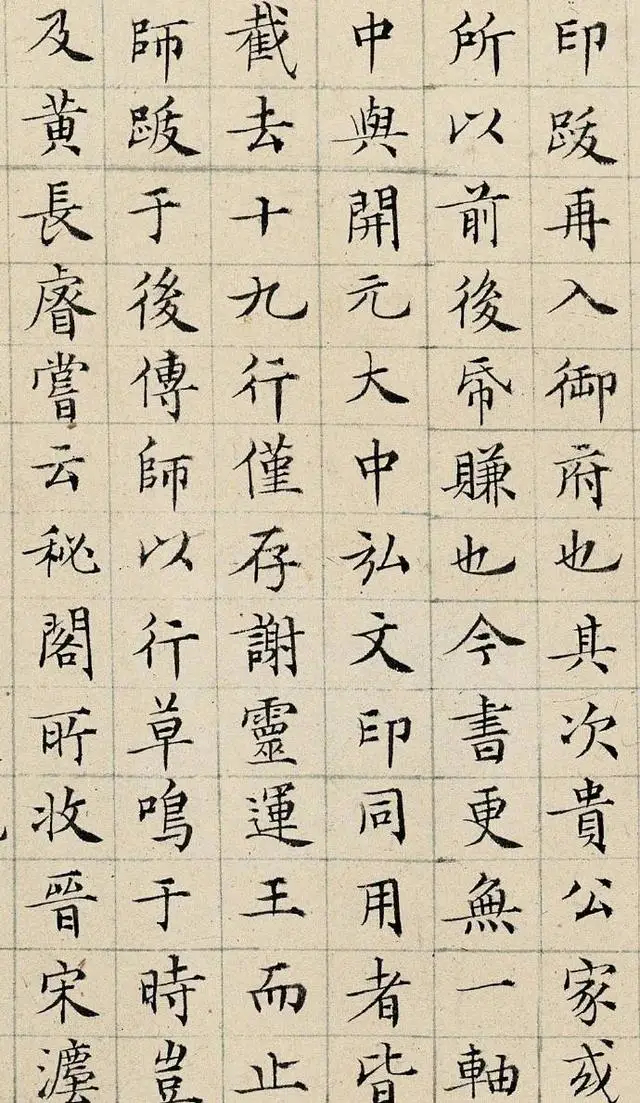 印跋再入御府也其次貴公家或
所以前後帋賺也今書更無一軸
中與開元大中弘文印同用者皆
截去十九行僅存謝靈運王而止
師跋于後傳師以行草鳴于時豈
及黃長睿嘗云秘閣所收晉宋灋